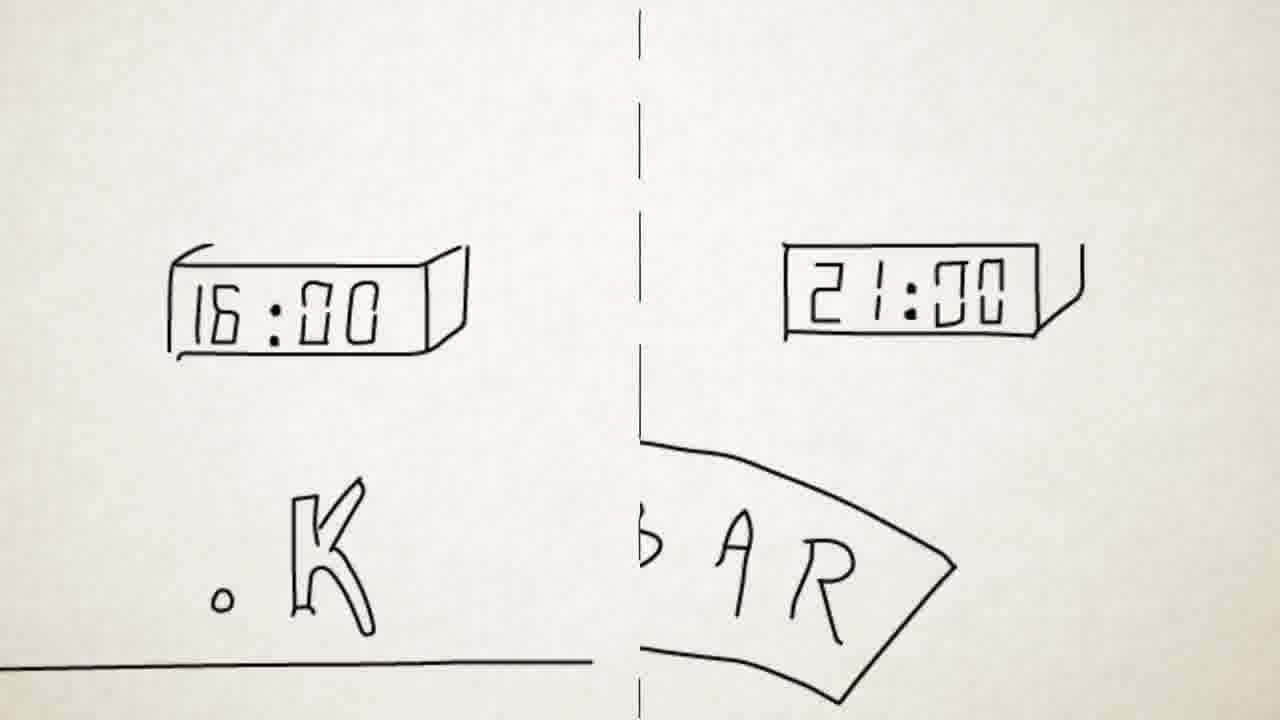 16:00
21:00
.K
BAR